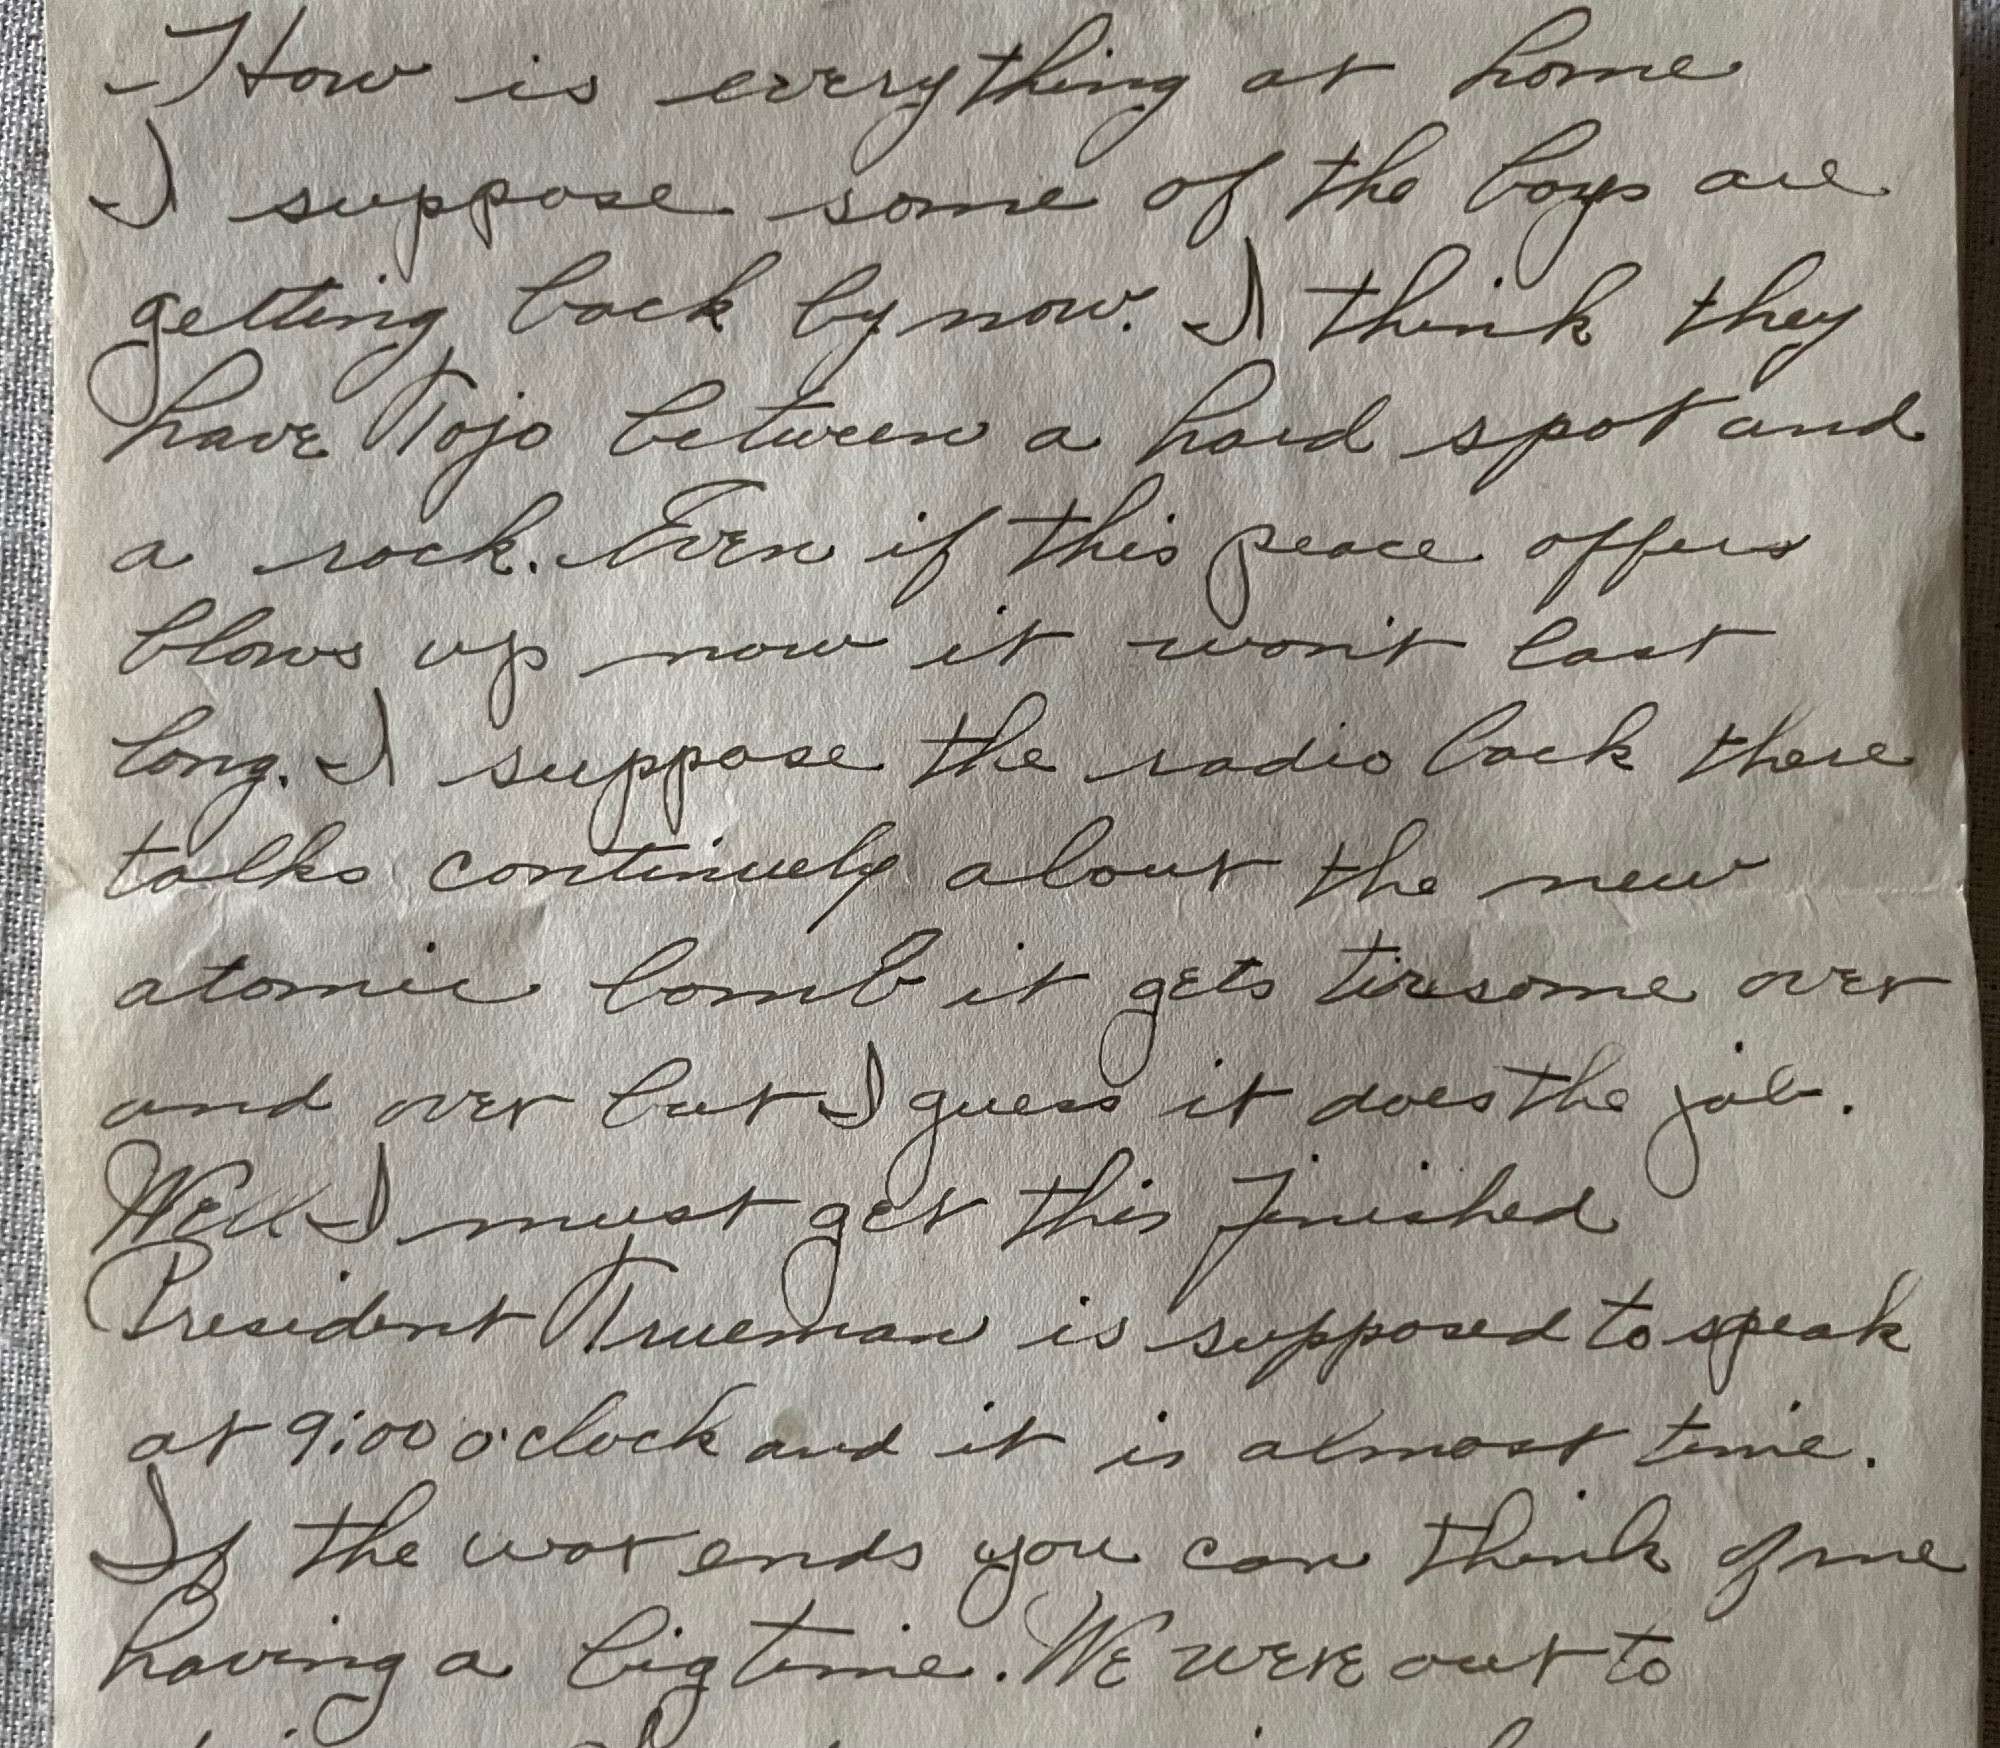 How is everything at home
I suppose some of the boys are
getting back by now. I think they
have Tojo between a hard spot and
a rock. Even if this peace offers
blows up now it won't last
long. I suppose the radio back there
talks continuely about the new
atomic bomb it gets tiresome over
and over but I guess it does the job.
Well I must get this finished
President Trueman is supposed to speak
at 9:00 o'clock and it is almost time.
If the war ends you can think of me
having a big time. We were out to